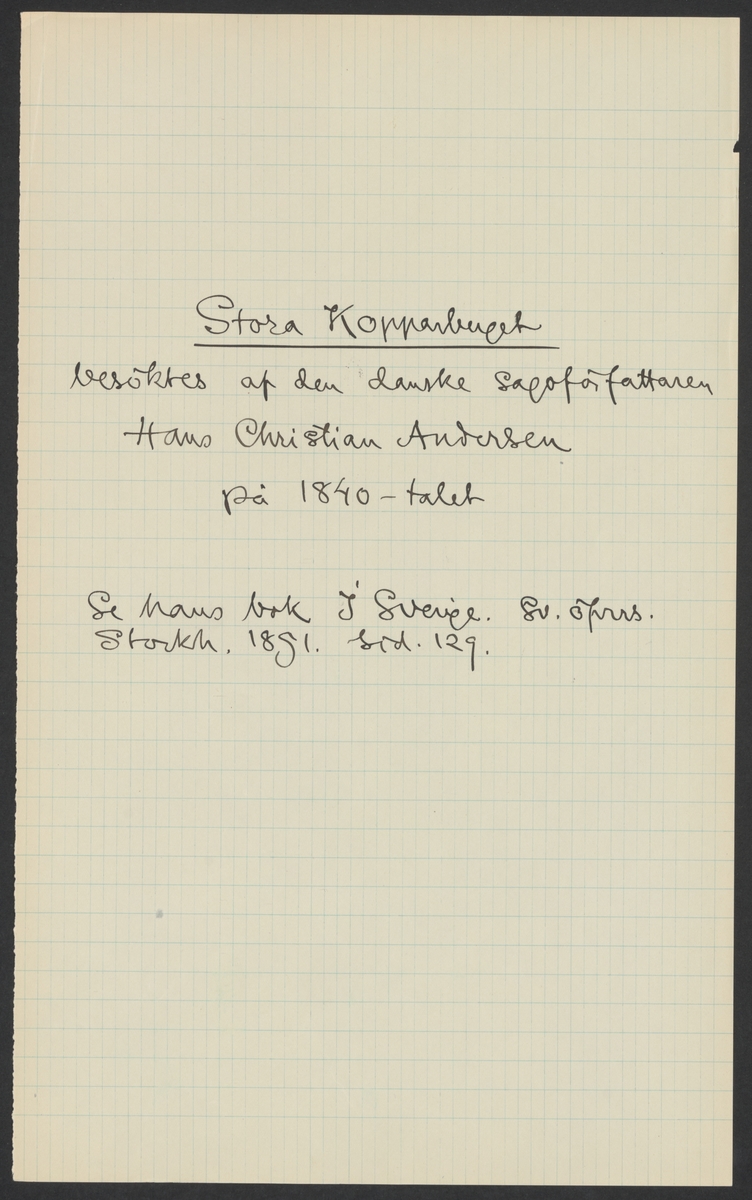 Stora Kopparberget
besöktes af den danske sagoförfattaren
Hans Christian Andersen
på 1840-talet
Se hans bok I Sverige. Sv. öfvrs.
Stockh. 1851. Sid. 129.